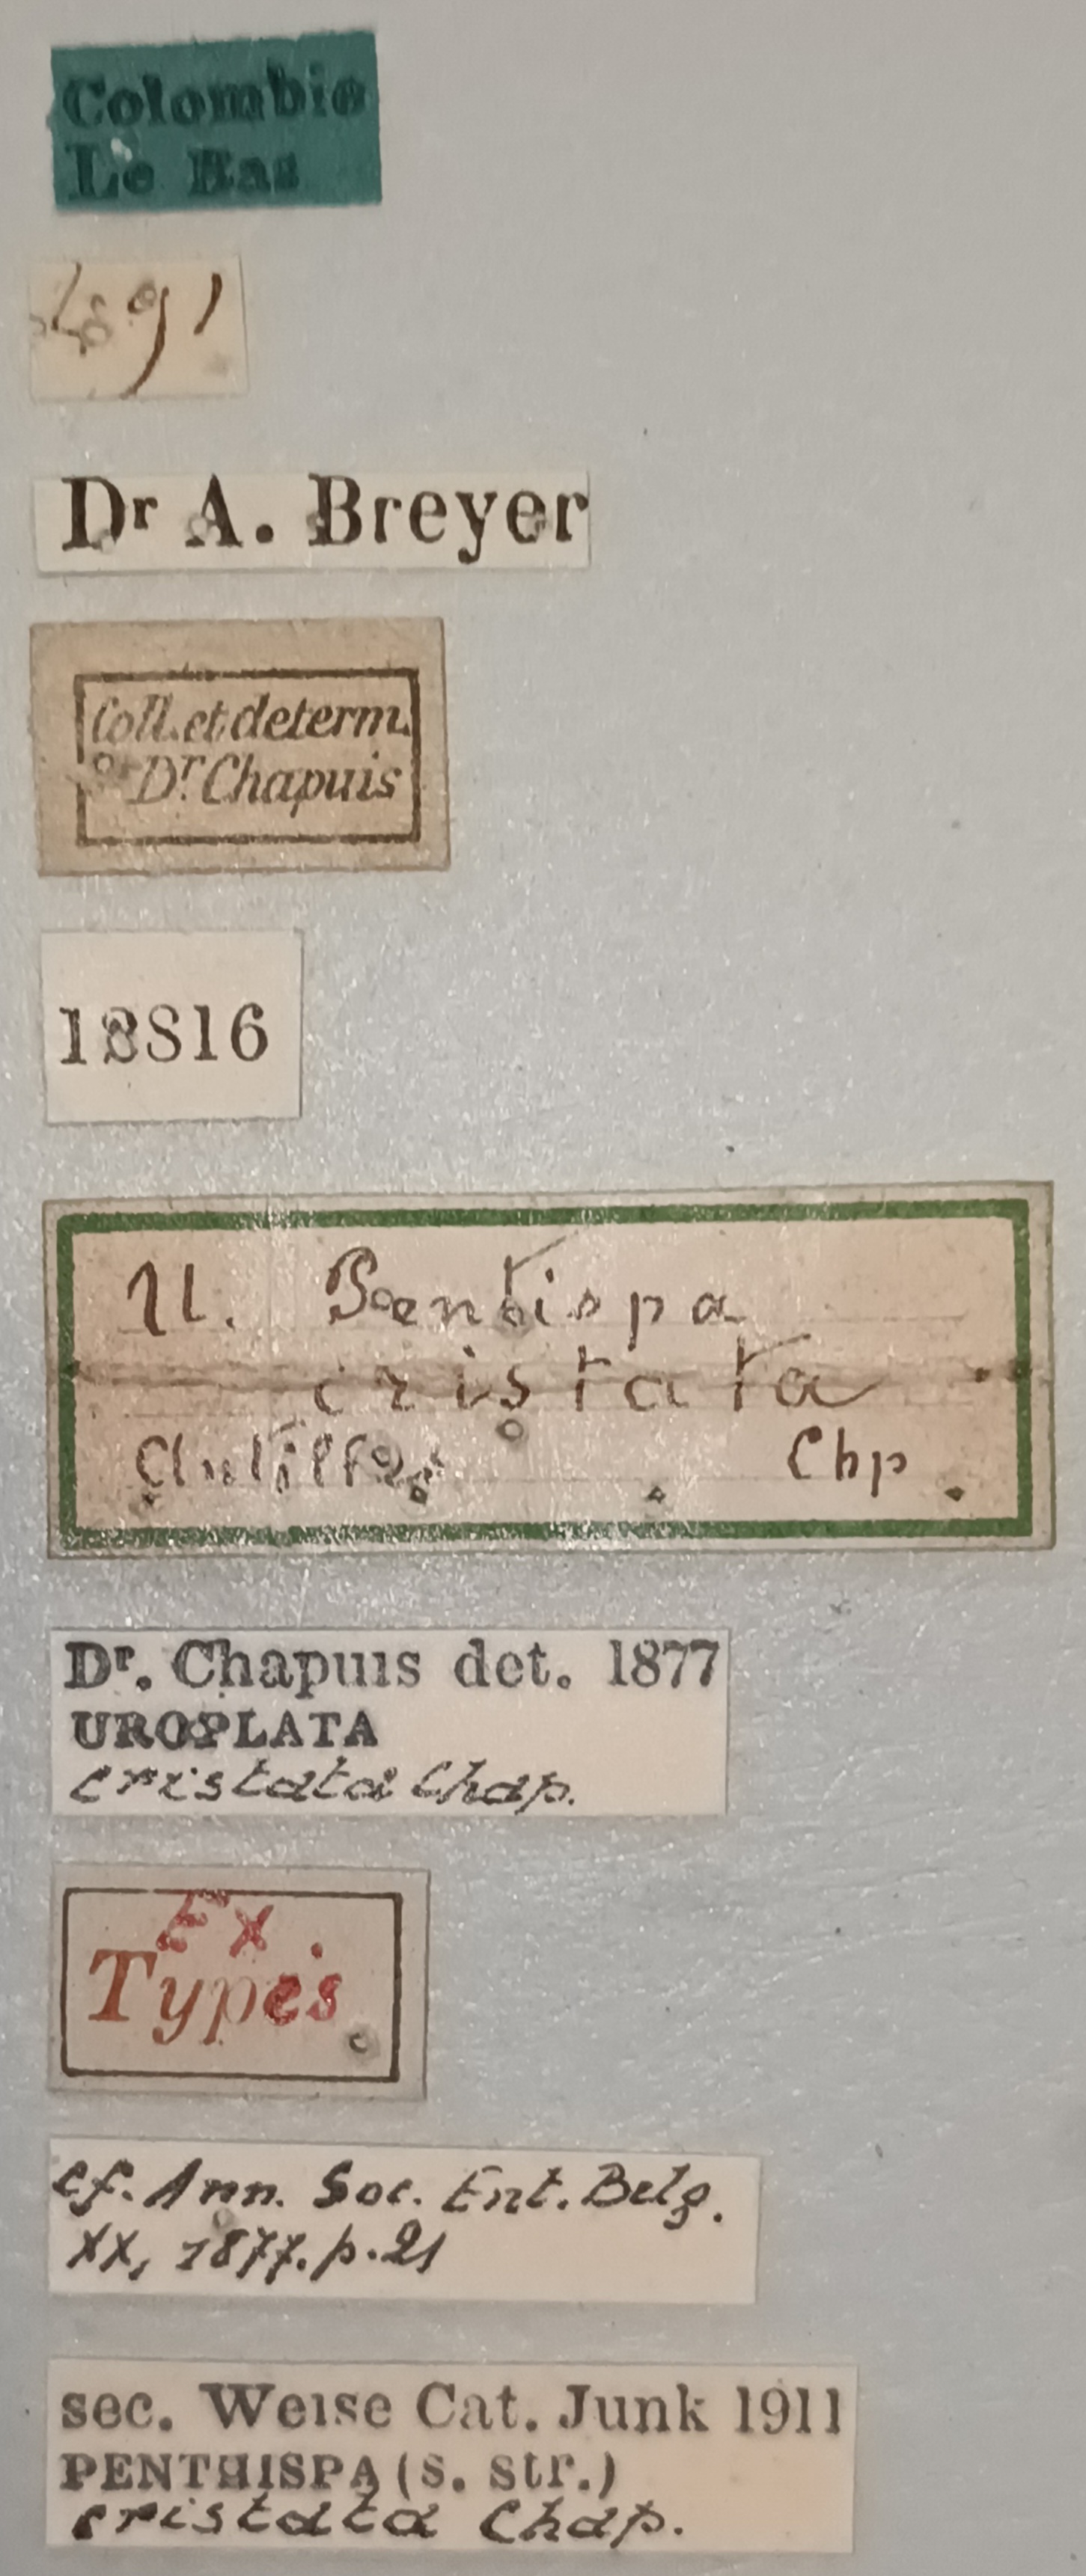 Colombie
Le Bas
Dr A. Breyer
Coll. et determ.
Dr. Chapuis
18816
U. Pentispa
cristata
Chp
Dr. Chapuis det. 1877
UROPLATA
cristata Chap.
Ex.
Types
cf. Ann. Soc. Ent. Belg.
XX, 1877. p. 21
sec. Weise Cat. Junk 1911
PENTHISPA (s. str.)
cristata Chap.